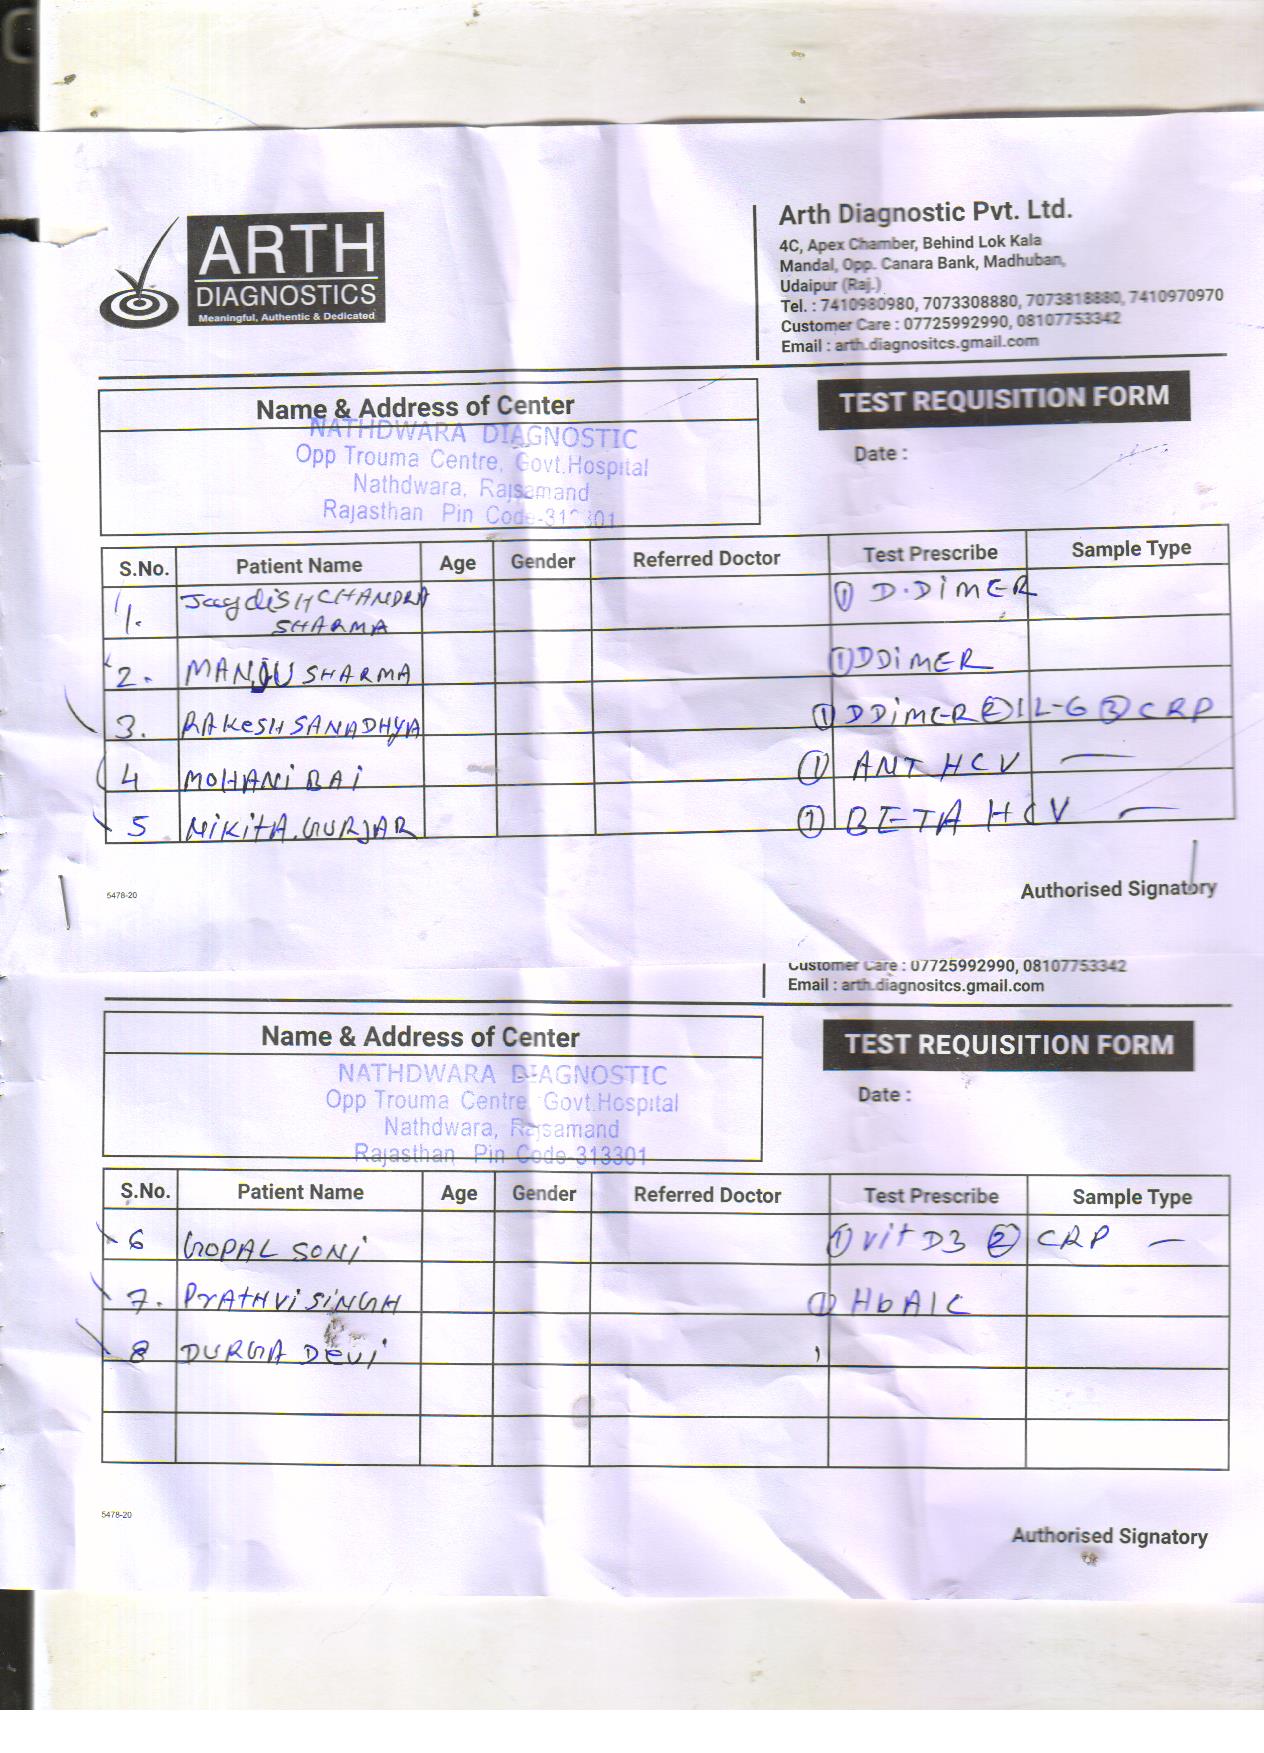 ARTH
DIAGNOSTICS
Meaningful, Authentic & Dedicated
Arth Diagnostic Pvt. Ltd.
4C, Apex Chamber, Behind Lok Kala
Mandal, Opp. Canara Bank, Madhuban,
Udaipur (Raj.)
Tel. : 7410980980, 7073308880, 7073818880, 7410970970
Customer Care : 07725992990, 08107753342
Email : arth.diagnositcs.gmail.com
Name & Address of Center
NATHDWARA DIAGNOSTIC
Opp Trouma Centre, Govt.Hospital
Nathdwara, Rajsamand
Rajasthan Pin Code-313301
TEST REQUISITION FORM
Date :
S.No. Patient Name Age Gender Referred Doctor Test Prescribe Sample Type
1. Jagdish CHANDRA ① D.DiMER
SHARMA
2. MANJU SHARMA ① DDiMER
3. RAKESH SANADHYA ① DDiMER ② IL-6 ③ CRP
4 MOHANI BAI ① ANT HCV —
5 NIKITA GURJAR ① BETA HCV —
5478-20
Authorised Signatory
Customer Care : 07725992990, 08107753342
Email : arth.diagnositcs.gmail.com
Name & Address of Center
NATHDWARA DIAGNOSTIC
Opp Trouma Centre, Govt.Hospital
Nathdwara, Rajsamand
Rajasthan Pin Code-313301
TEST REQUISITION FORM
Date :
S.No. Patient Name Age Gender Referred Doctor Test Prescribe Sample Type
6 GOPAL SONI ① vit D3 ② CRP —
7. PrATHVi SiNGH ① HbA1C
8 DURGA DEVi
5478-20
Authorised Signatory